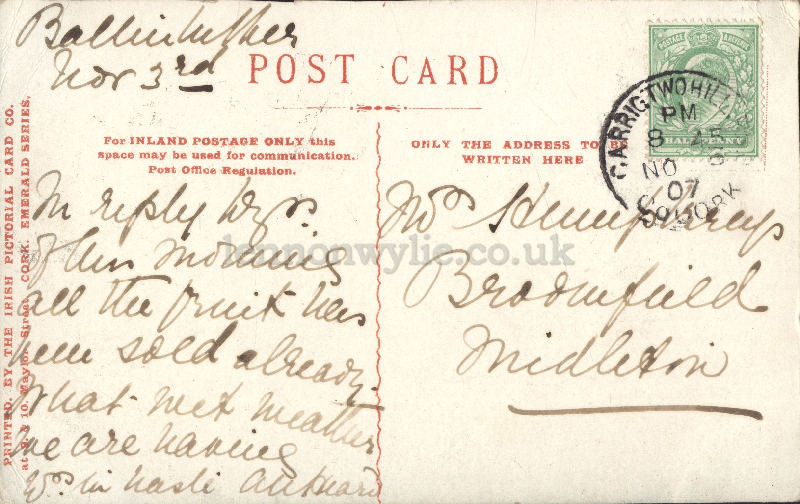 Nov 3rd
POST CARD
POSTAGE & REVENUE
HALFPENNY
CARRIGTWOHILL
PM
8 45
NO 3
07
CO. CORK
For INLAND POSTAGE ONLY this
space may be used for communication.
Post Office Regulation.
ONLY THE ADDRESS TO BE
WRITTEN HERE
In reply to yrs
of this morning
all the fruit has
been sold already
What wet weather
we are having
Yrs in haste
Mrs Humphreys
Broomfield
Midleton
PRINTED BY THE IRISH PICTORIAL CARD CO.
at 9 & 10, Maylor Street, CORK. EMERALD SERIES.
lennonwylie.co.uk